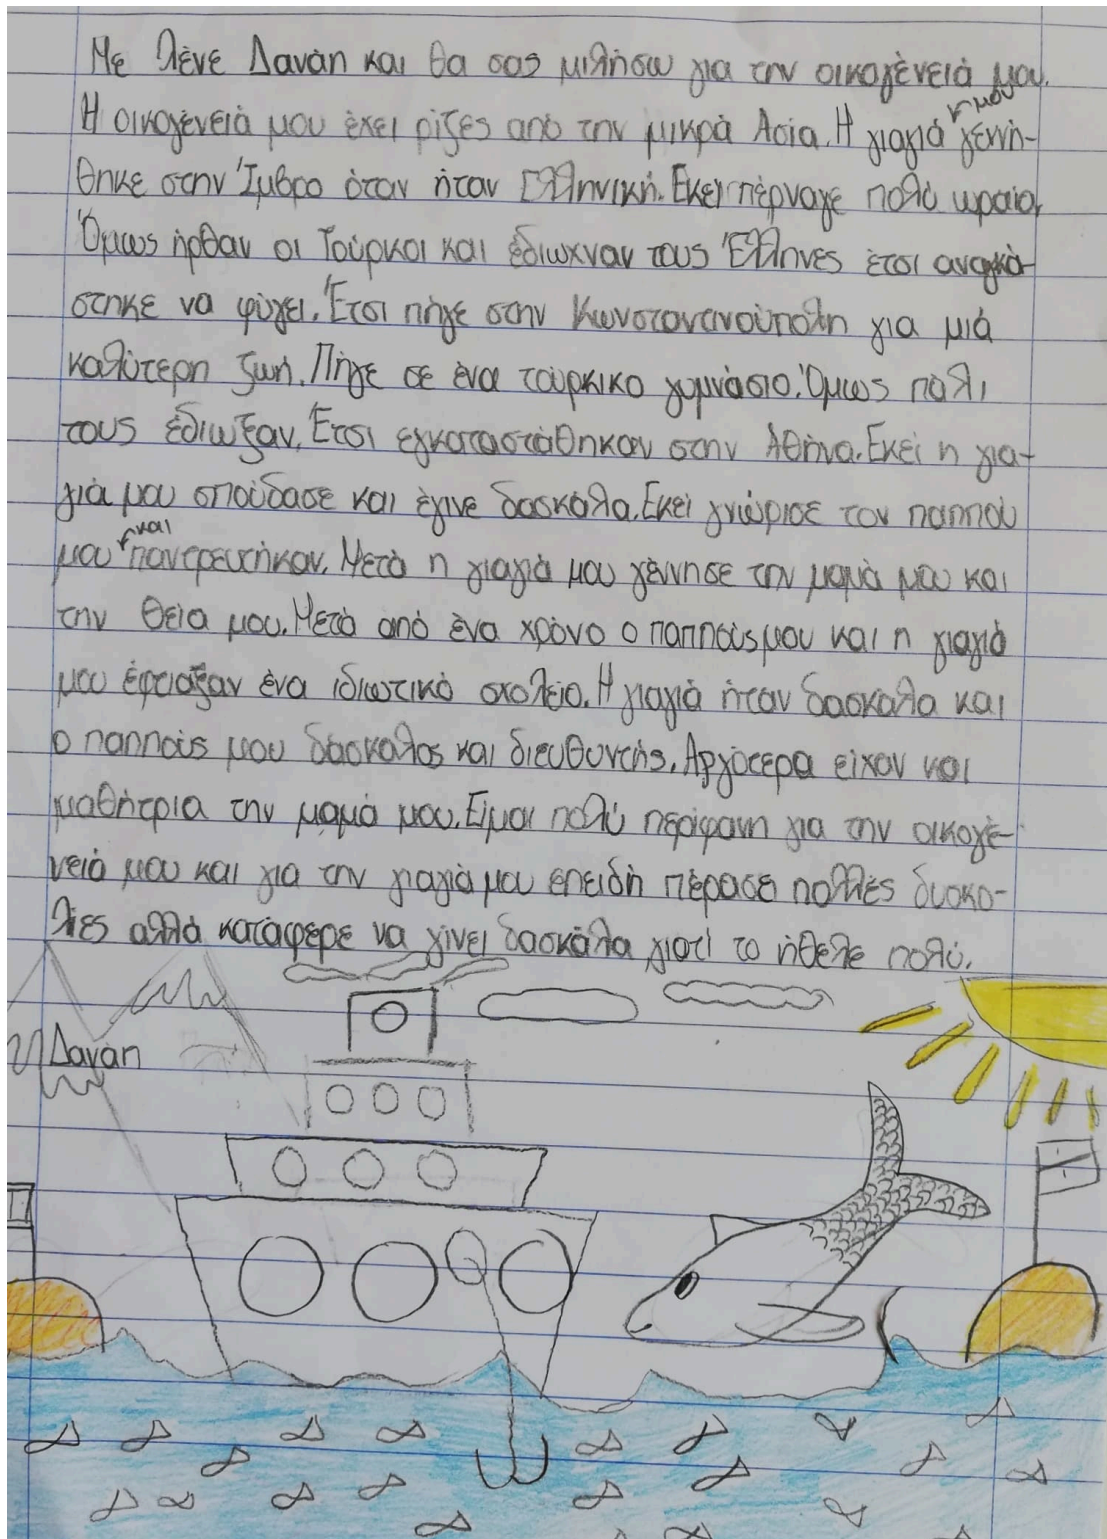 Με λένε Δανάη και θα σας μιλήσω για την οικογένειά μου.
Η οικογένειά μου έχει ρίζες από την μικρά Ασία. Η γιαγιά μου γεννή-
θηκε στην Ίμβρο όταν ήταν Ελληνική. Εκεί πέρναγε πολύ ωραία.
Όμως ήρθαν οι Τούρκοι και έδιωχναν τους Έλληνες έτσι αναγκά-
στηκε να φύγει. Έτσι πήγε στην Κωνσταντινούπολη για μιά
καλύτερη ζωή. Πήγε σε ένα τούρκικο γυμνάσιο. Όμως πάλι
τους έδιωξαν. Έτσι εγκαταστάθηκαν στην Αθήνα. Εκεί η για-
γιά μου σπούδασε και έγινε δασκάλα. Εκεί γνώρισε τον παππού
μου και παντρευτήκαν. Μετά η γιαγιά μου γέννησε την μαμά μου και
την θεία μου. Μετά από ένα χρόνο ο παππούς μου και η γιαγιά
μου έφτιαξαν ένα ιδιωτικό σχολείο. Η γιαγιά ήταν δασκάλα και
ο παππούς μου δάσκαλος και διευθυντής. Αργότερα είχαν και
μαθήτρια την μαμά μου. Είμαι πολύ περίφανη για την οικογέ-
νειά μου και για την γιαγιά μου επειδή πέρασε πολλές δυσκο-
λίες αλλά κατάφερε να γίνει δασκάλα γιατί το ήθελε πολύ.
Δανάη